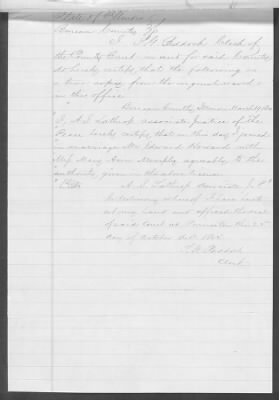 State of Illinois
Bureau County
I, Paddock Clerk of
the County Court in and for said County
do hereby certify, that the following is
a true copy from the original record
in this office
Bureau County Illinois March
I, A. S. Lathrop associate Justice of the
Peace hereby certify, that on this day I joined
in marriage Mr Edward Howard with
Mary Ann Murphy agreeably to the
authority given in the above license
A. S. Lathrop Associate J. P.
In testimony whereof I have here
set my hand and affixed the seal
of said Court at Princeton this
day of October A.D.
Paddock
Clerk